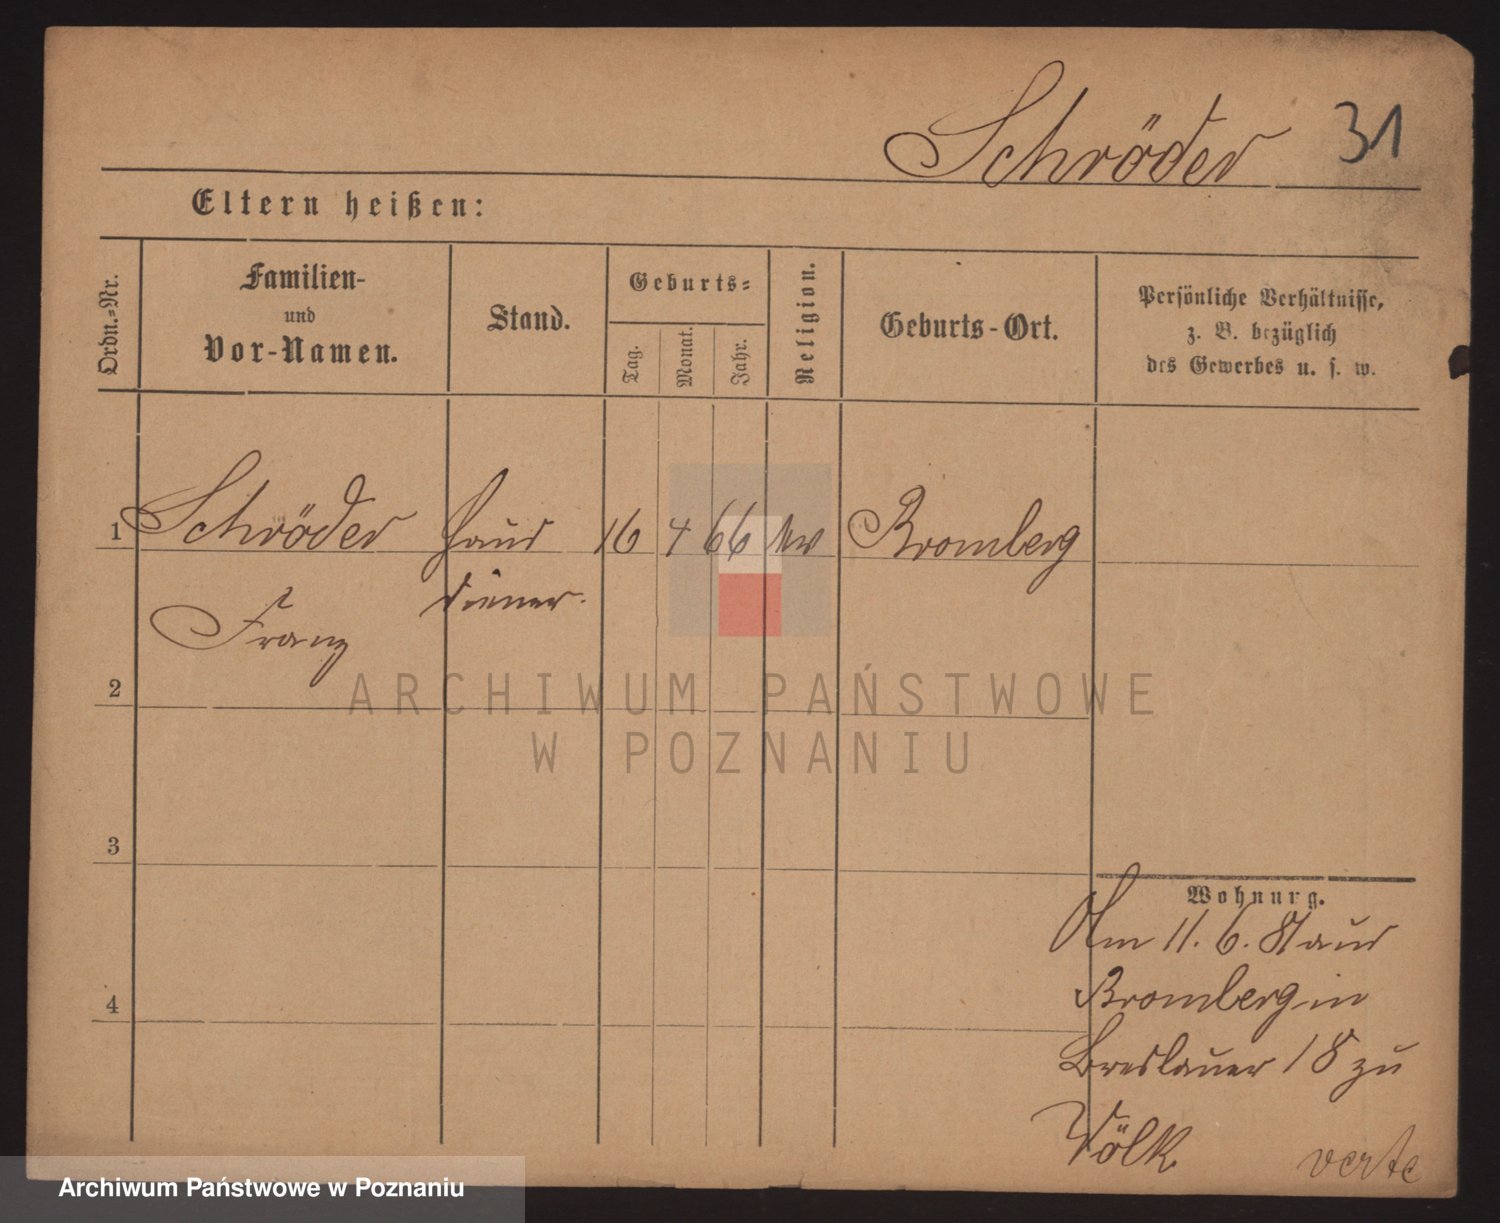 Schröder 31
Eltern heißen:
Ordn.=Nr.
Familien-
und
Vor-Namen.
Stand.
Geburts=
Tag.
Monat.
Jahr.
Religion.
Geburts-Ort.
Persönliche Verhältnisse,
z. B. bezüglich
des Gewerbes u. s. w.
1 Schröder Haus 16 4 66 Bromberg
diener.
Franz
2
3
4
Wohnung.
Am 11. 6. 87 aus
Bromberg in
Breslauer 18 zu
Völk
verte
ARCHIWUM PAŃSTWOWE
W POZNANIU
Archiwum Państwowe w Poznaniu